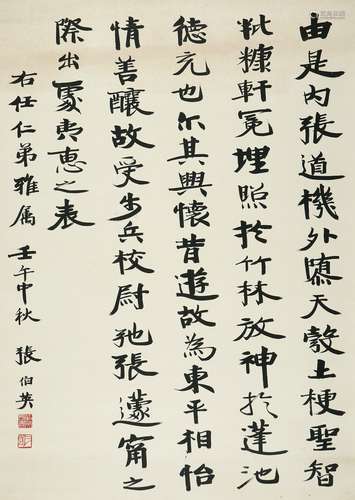 由是内張道機外隳天彀上梗聖智
粃糠軒冕埋照於竹林放神於蓬池
德充也尔其興懷昔遊故為東平相怡
情善釀故受步兵校尉弛張蘧甯之
際出處夷惠之表
右任仁弟雅属 壬午中秋 張伯英